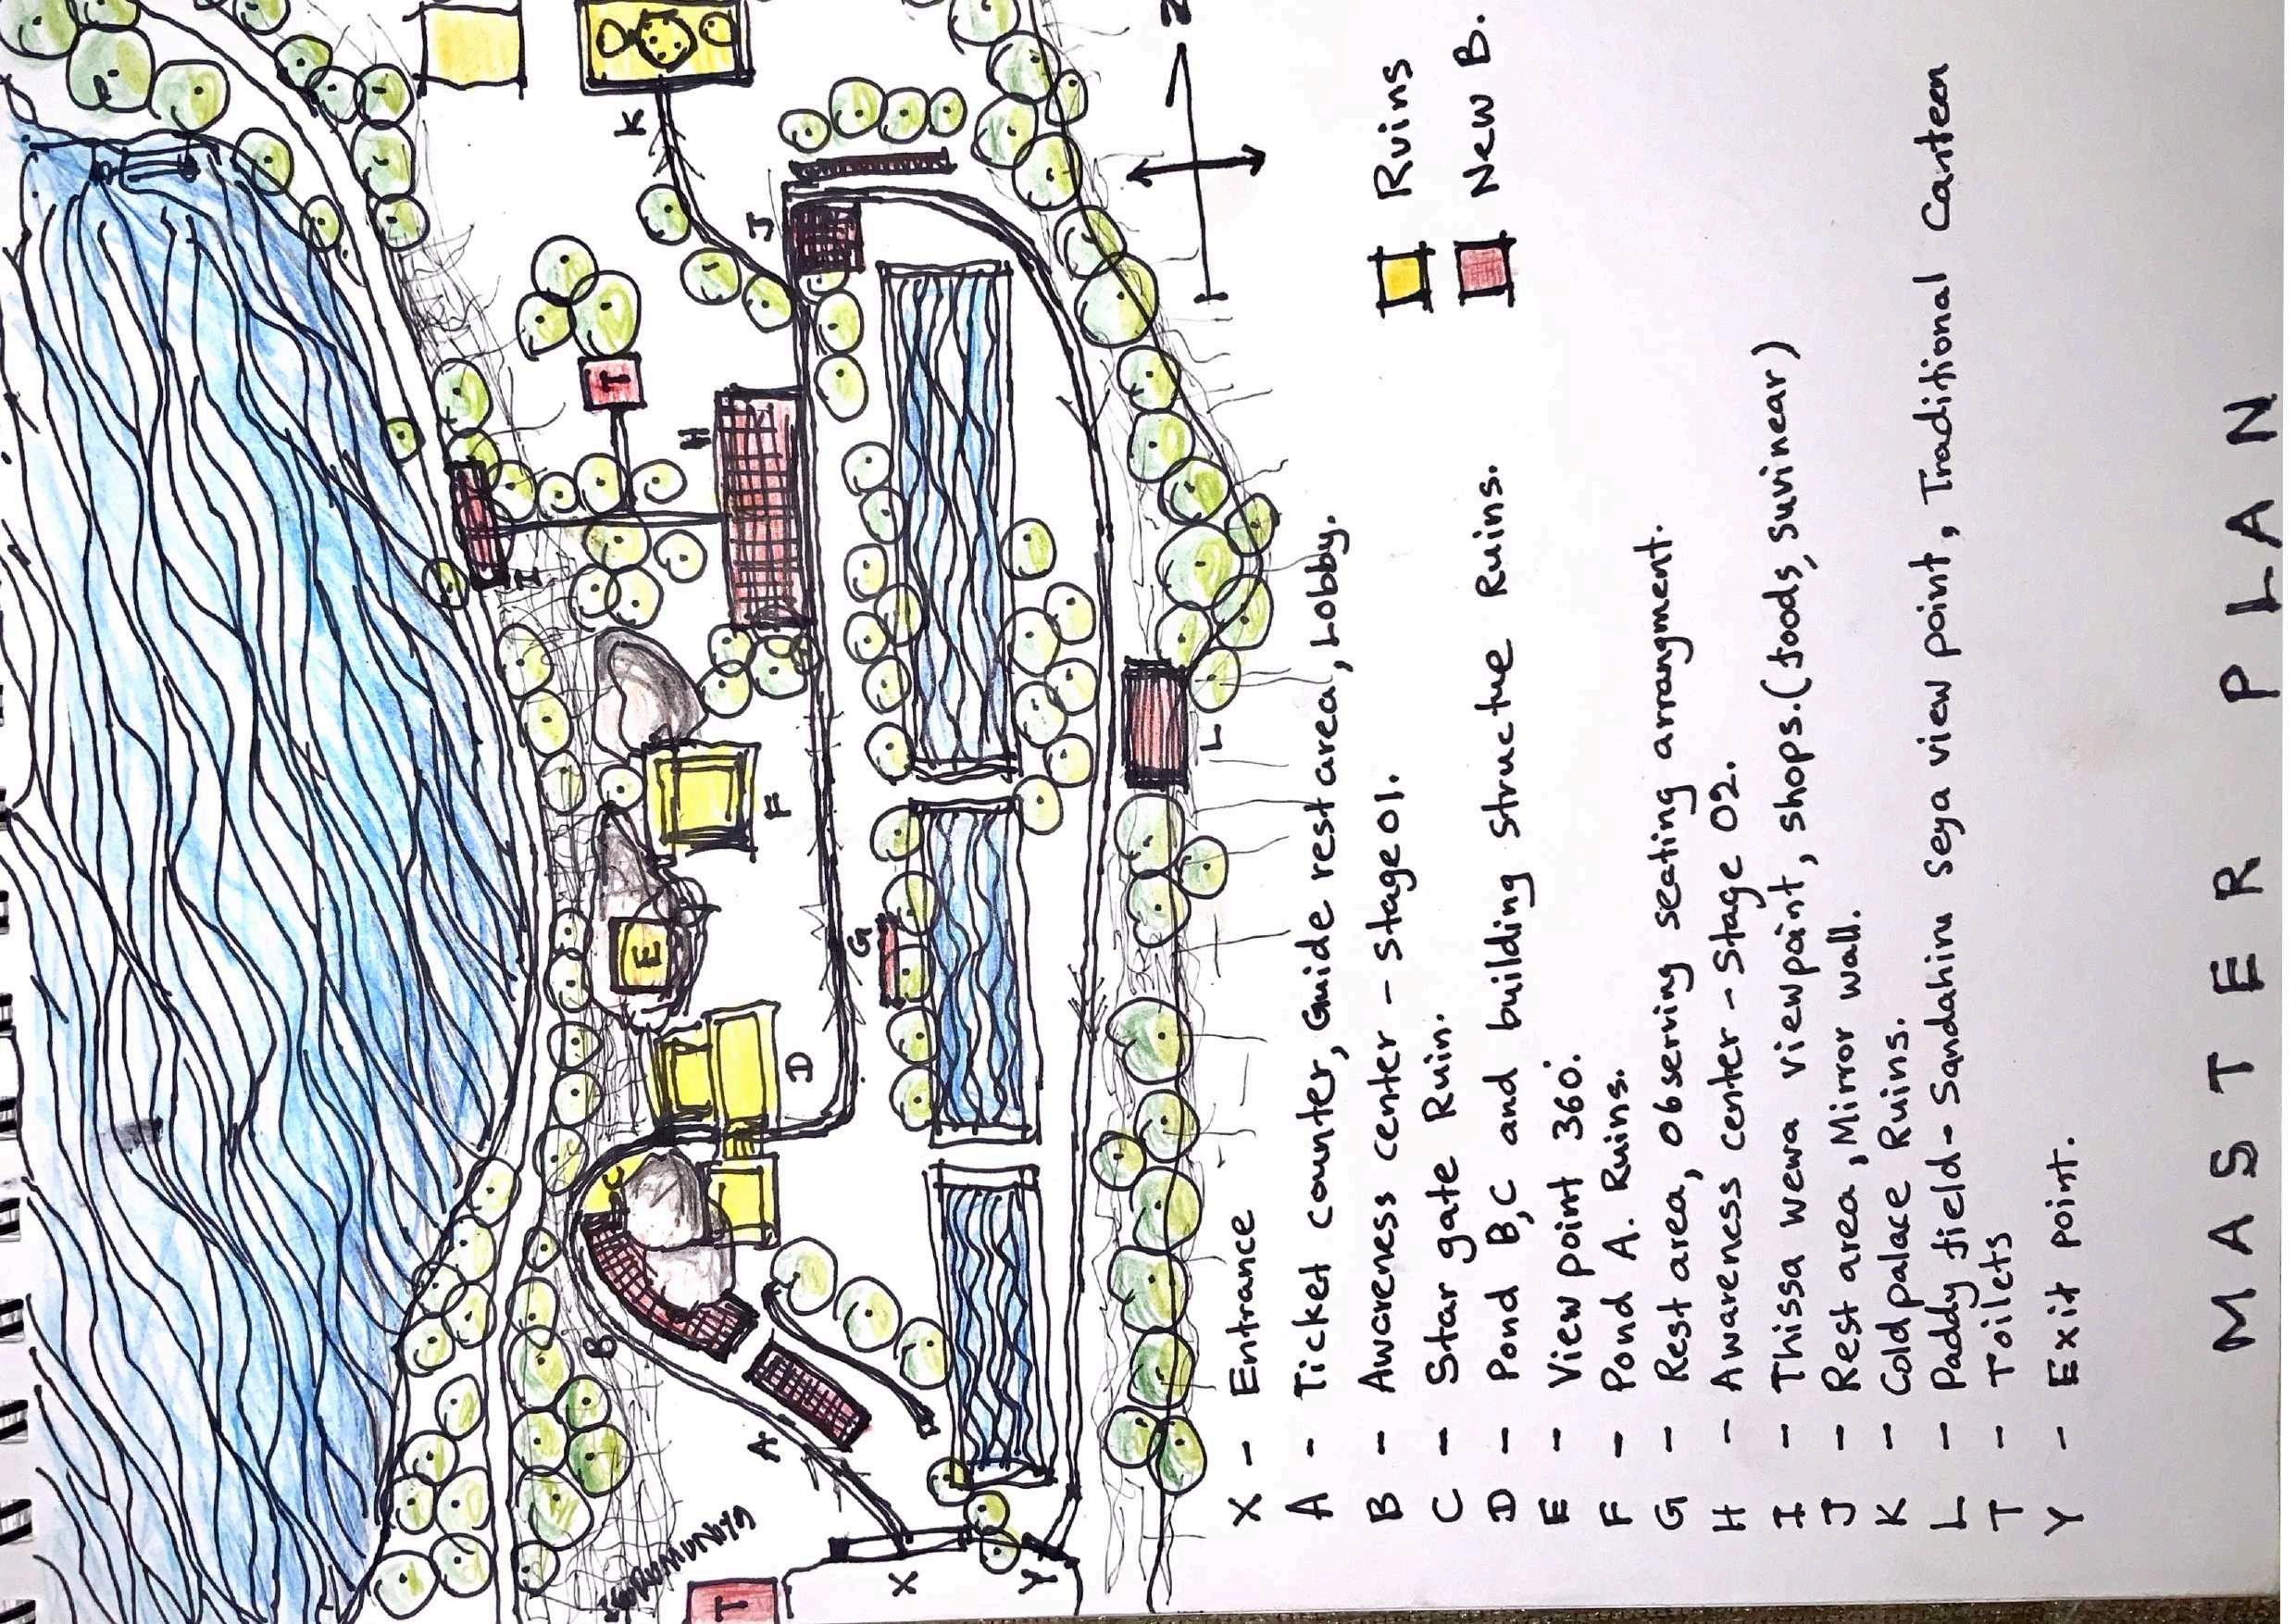 ISURUMUNIYA
T
X
Y
A
B
C
D
E
F
G
H
I
T
J
K
L
N
Ruins
New B.
X - Entrance
A - Ticket counter, Guide rest area, Lobby.
B - Awareness center - Stage 01.
C - Star gate Ruin.
D - Pond B,C and building structue Ruins.
E - View point 360°.
F - Pond A. Ruins.
G - Rest area, Observing seating arrangment.
H - Awareness center - Stage 02.
I - Thissa wewa viewpoint, shops.(foods, suvinear)
J - Rest area, Mirror wall.
K - Cold palace Ruins.
L - Paddy field - Sandahiru seya view point, Traditional Canteen
T - Toilets
Y - Exit point.
MASTER PLAN